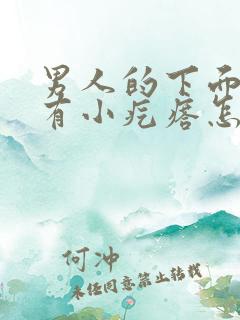 男人的下面
有小疙瘩怎
何冲
未经同意禁止转载